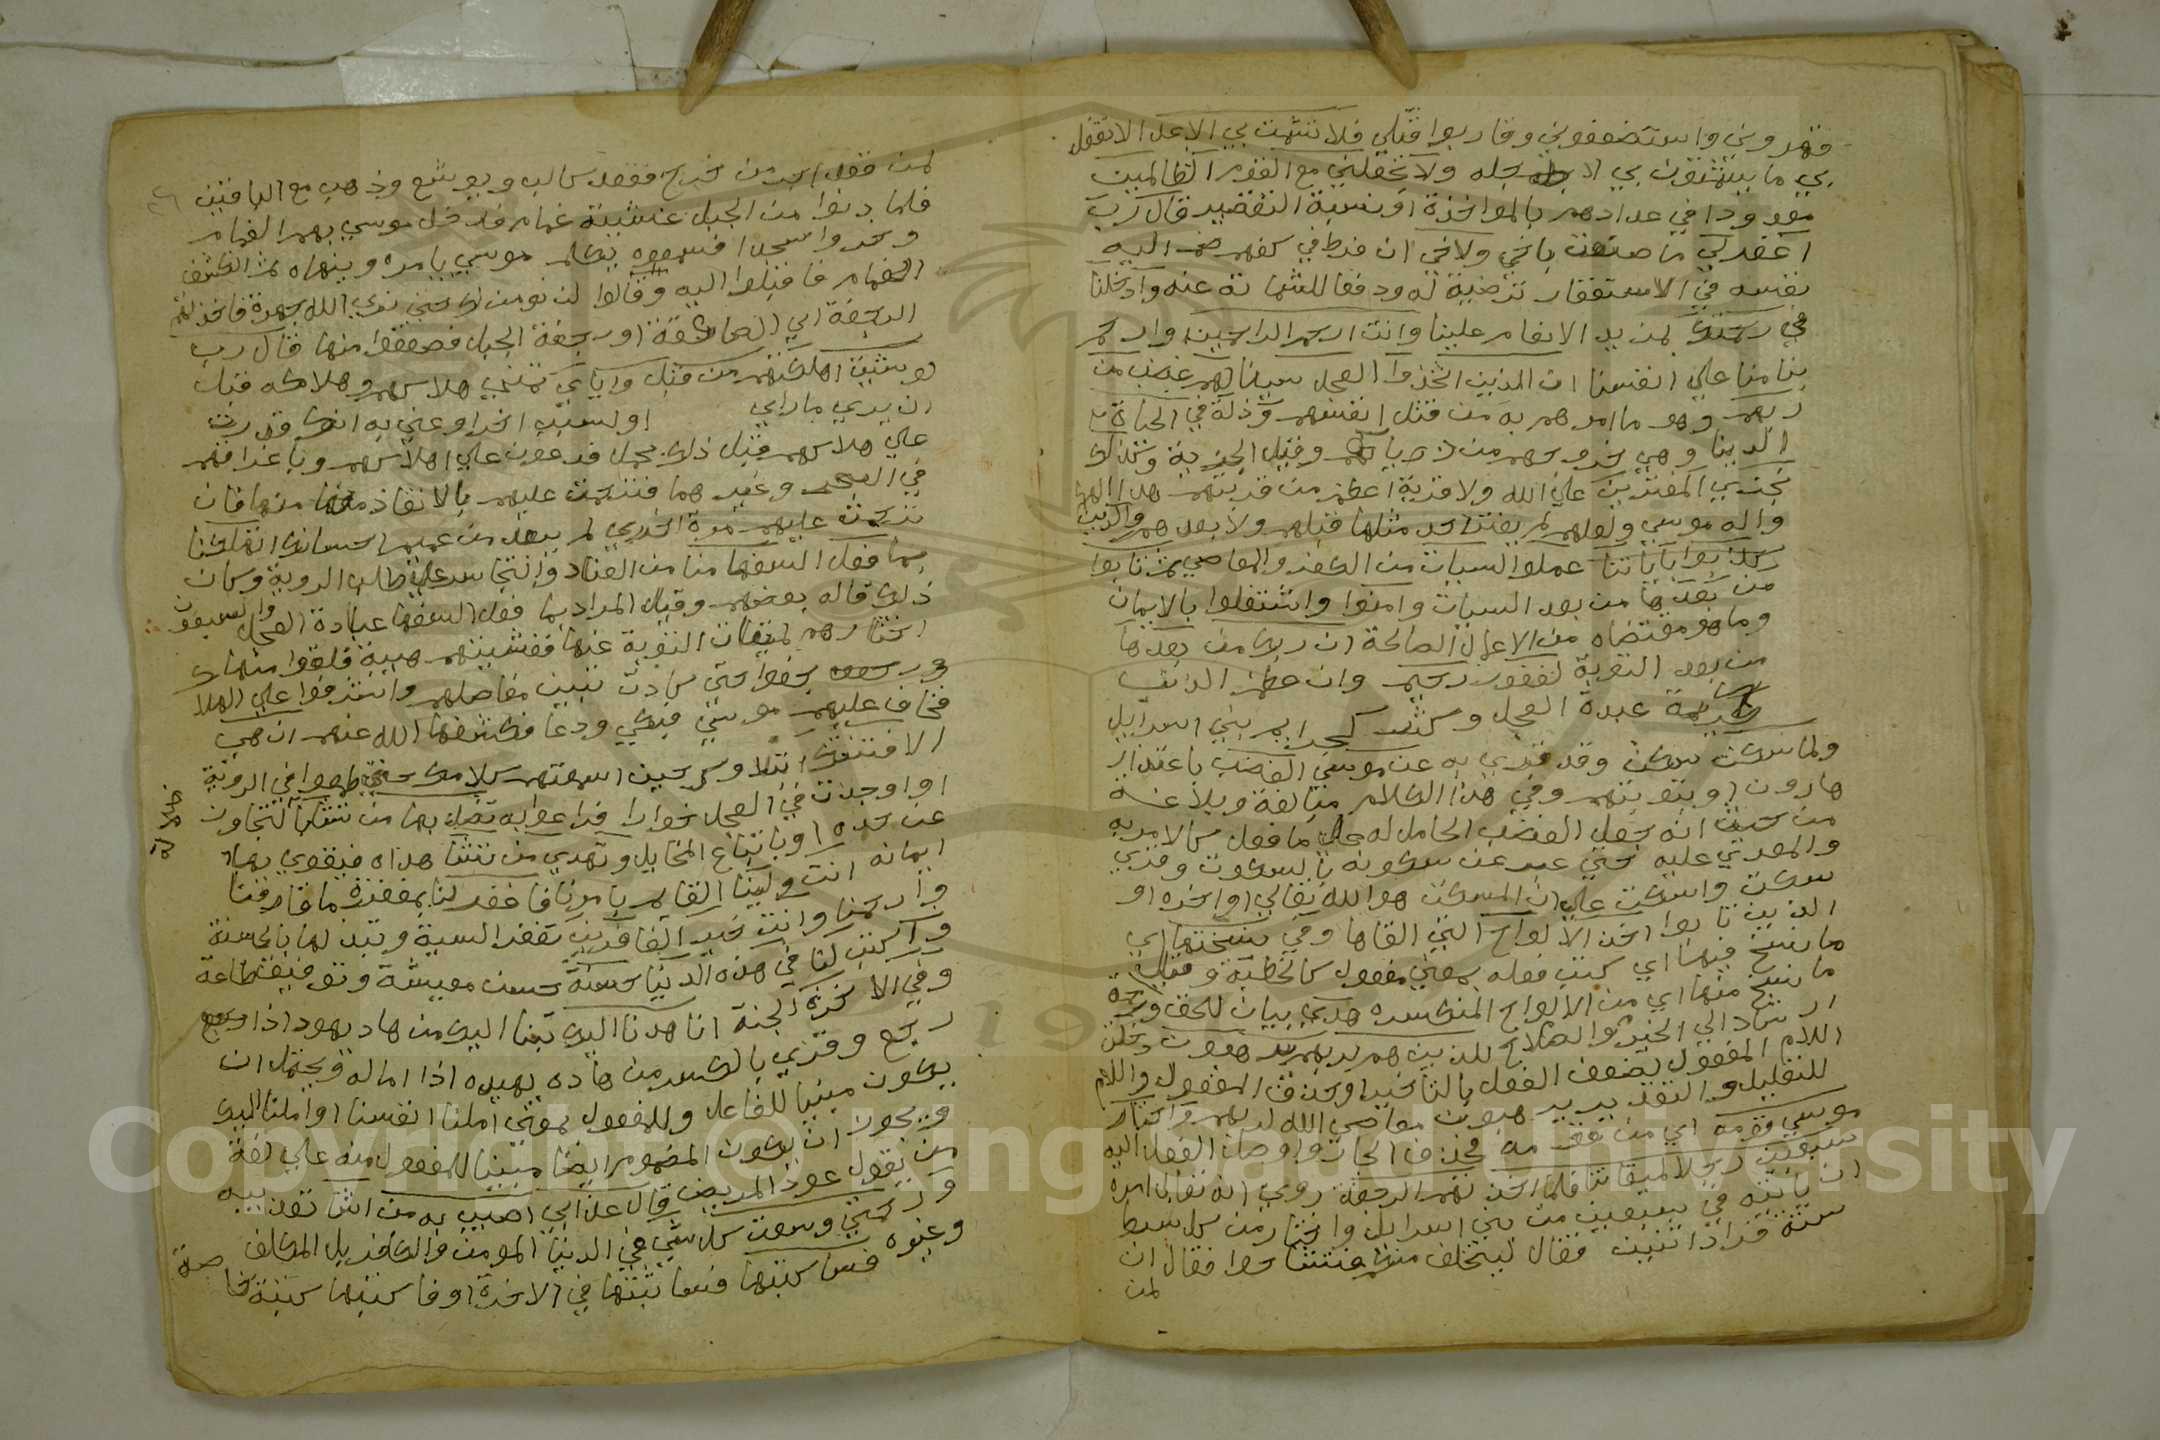 فقهروني واستضعفوني وقاربوا قتلي فلا تشمت بي الاعدا لا تفعل
بي ما يشمتون بي لاجله ولا تجعلني مع القوم الظالمين
معدودا في عدادهم بالمواخذة او نسبة التقصير قال رب
اغفرلي ما صنعت باخي ولاخي ان فرط في كفهم ضم اليه
نفسه في الاستغفار ترضية له ودفعا للشماتة عنه وادخلنا
في رحمتك بمزيد الانعام علينا وانت ارحم الراحمين وارحم
بنا منا علي انفسنا ان الذين اتخذوا العجل سينالهم غضب من
ربهم وهو ما امرهم به من قتل انفسهم وذلة في الحياة
الدنيا وهي خروجهم من ديارهم وقيل الجزية وكذلك
نجزي المفترين علي الله ولا فرية اعظم من فريتهم هذا الهكم
واله موسي ولعله لم يفتر احد مثلها قبلهم ولا بعدهم والذين
عملوا السيات من الكفر والمعاصي ثم تابوا
من بعدها من بعد السيات وامنوا واشتغلوا بالايمان
وما هو مقتضاه من الاعمال الصالحة ان ربك من بعدها
من بعد التوبة لغفور رحيم وان عظم الذنب
كجريمة عبدة العجل وكثر كجرايم بني اسرايل
ولما سكت سكن وقد قري به عن موسي الغضب باعتذار
هارون او بتوبتهم وفي هذا الكلام مبالغة وبلاغة
من حيث انه جعل الغضب الحامل له علي ما فعل كالامر به
والمغري عليه حتي عبر عن سكونه بالسكوت وقري
سكت واسكت علي ان المسكت هو الله تعالي او اخوه او
الذين تابوا اخذ الالواح التي القاها وفي نسختها اي
ما نسخ فيها اي كتب فعله بمعني مفعول كالخطبة وقيل
ما نسخ منها اي من الالواح المنكسره هدي بيان للحق ورحمة
ارشاد الي الخير والصلاح للذين هم لربهم يرهبون دخلت
اللام المفعول لضعف الفعل بالتاخير او حذف المفعول واللام
للتعليل والتقدير يرهبون معاصي الله لربهم واختار
موسي قومه اي من قومه فحذف الجار واوصل الفعل اليه
سبعين رجلا لميقاتنا فلما اخذتهم الرجفة روي انه تعالي امره
ان ياتيه في سبعين من بني اسرايل واختار من كل سبط
ستة فزاد اثنين فقال ليتخلف منكم فتشاحوا فقال ان
لمن
لمن قعد اجر من خرج فقعد كالب ويوشع وذهب مع الباقين
فلما دنوا من الجبل غشيه غمام فدخل موسي بهم الغمام
وخروا سجدا فسمعوه يكلم موسي يامره وينهاه ثم انكشف
الغمام فاقبلوا اليه وقالوا لن نومن لك حتي نري الله جهرة فاخذتهم
الرجفة اي الصاعقة او رجفة الجبل فصعقوا منها قال رب
لو شيت اهلكتهم من قبل واياي تمني هلاكهم وهلاكه قبل
ان يري ما راي او لسبب اخر او عني به انك قدرت
علي هلاكهم قبل ذلك بحمل فرعون علي اهلاكهم وباغراقهم
في البحر وغيرهما فترحمت عليهم بالانقاذ منها فان
ترحمت عليهم مرة اخري لم يبعد من عميم احسانك اتهلكنا
بما فعل السفها منا من العناد والتجاسر علي طلب الروية وكان
ذلك قاله بعضهم وقيل المراد بما فعل السفها عبادة العجل والسبعون
اختارهم لميقات التوبة عنها فغشيتهم هيبة قلقوا منها
ورجفوا حتي كادت تبين مفاصلهم واشرفوا علي الهلاك
فخاف عليهم موسي فبكي ودعا فكشفها الله عنهم ان هي
الا فتنتك ابتلاوك حين اسمعتهم كلامك حتي طمعوا في الروية
او اوجدت في العجل خوارا فزاغوا به تضل بها من تشا بالتجاوز
عن حده او باتباع المخايل وتهدي من تشا هداه فيقوي بها
ايمانه انت ولينا القايم بامرنا فاغفر لنا بمغفرة ما قارفنا
وارحمنا وانت خير الغافرين تغفر السية وتبدلها بالحسنة
واكتب لنا في هذه الدنيا حسنة حسن معيشة وتوفيق طاعة
وفي الاخرة الجنة انا هدنا اليك تبنا اليك من هاد يهود اذا
رجع وقري بالكسر من هاده يهيده اذا اماله ويحتمل ان
يكون مبنيا للفاعل وللمفعول بمعني املنا انفسنا او املنا اليك
ويجوز ان يكون المضموم ايضا مبنيا للمفعول منه علي لغة
من يقول عود المريض قال عذابي اصيب به من اشا تعذيبه
ورحمتي وسعت كل شي في الدنيا المومن والكافر بل المكلف
وغيره فساكتبها فساثبتها في الاخرة او فاكتبها كتبة خا
صة